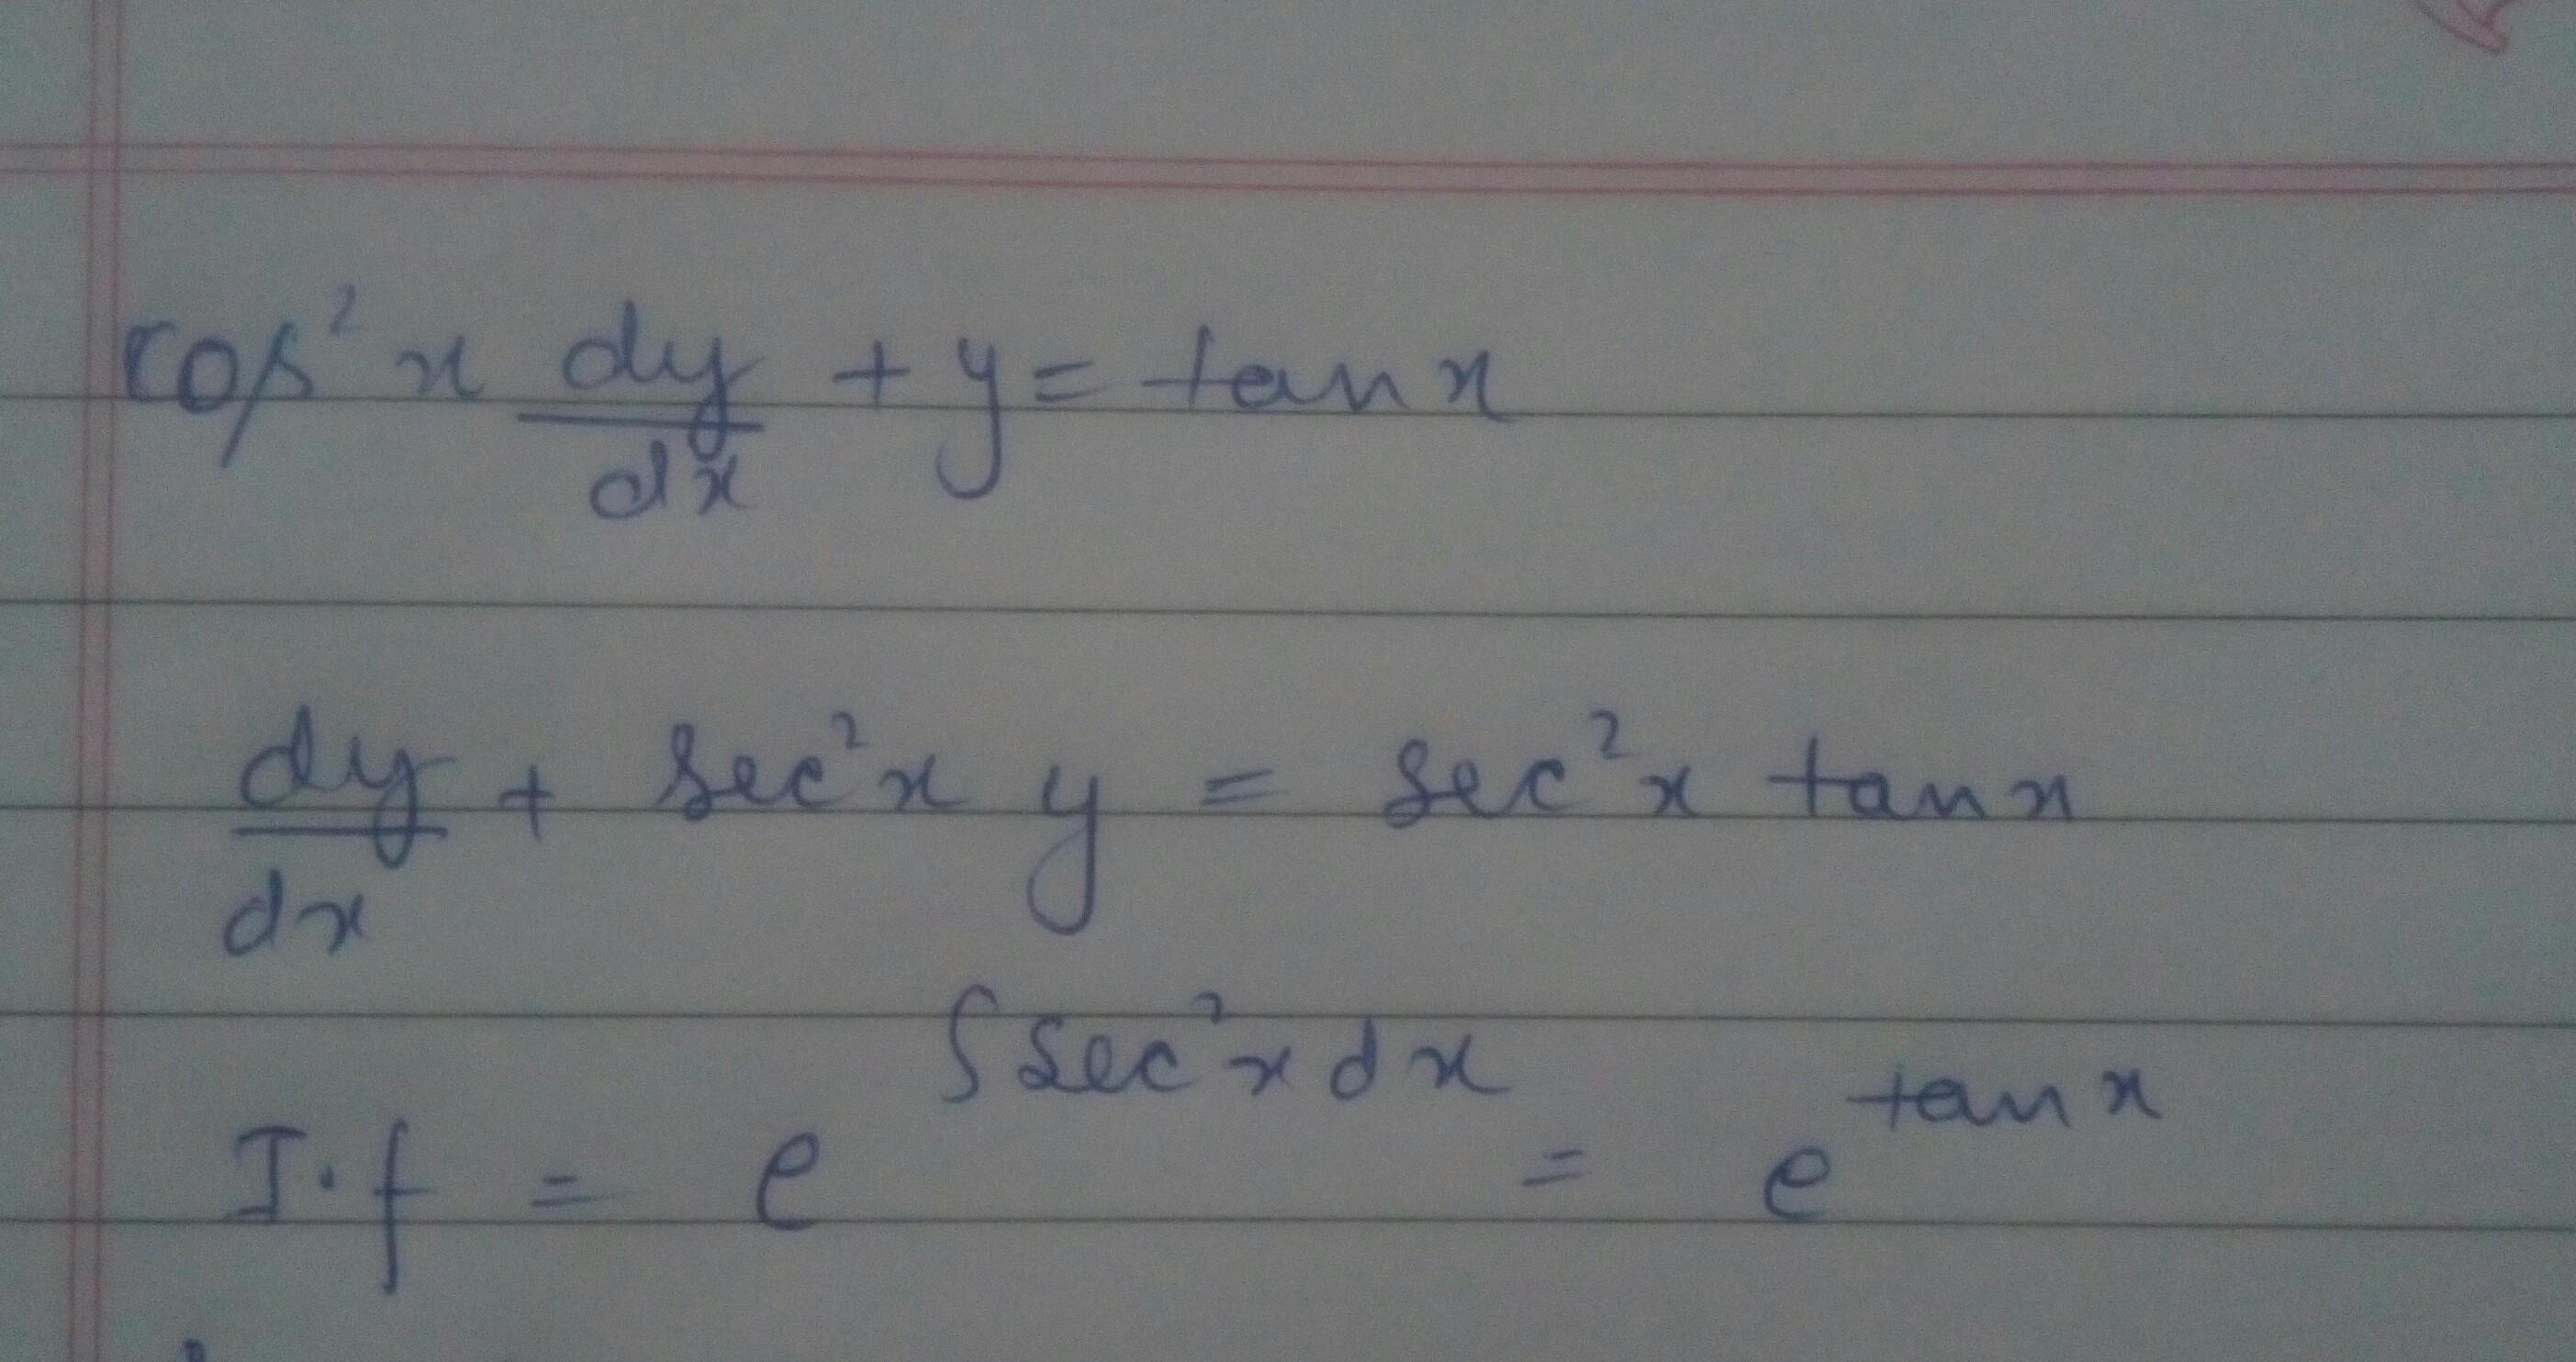 cos² x dy/dx + y = tan x
dy/dx + sec²x y = sec²x tan x
I.f = e^∫sec²x dx = e^tan x